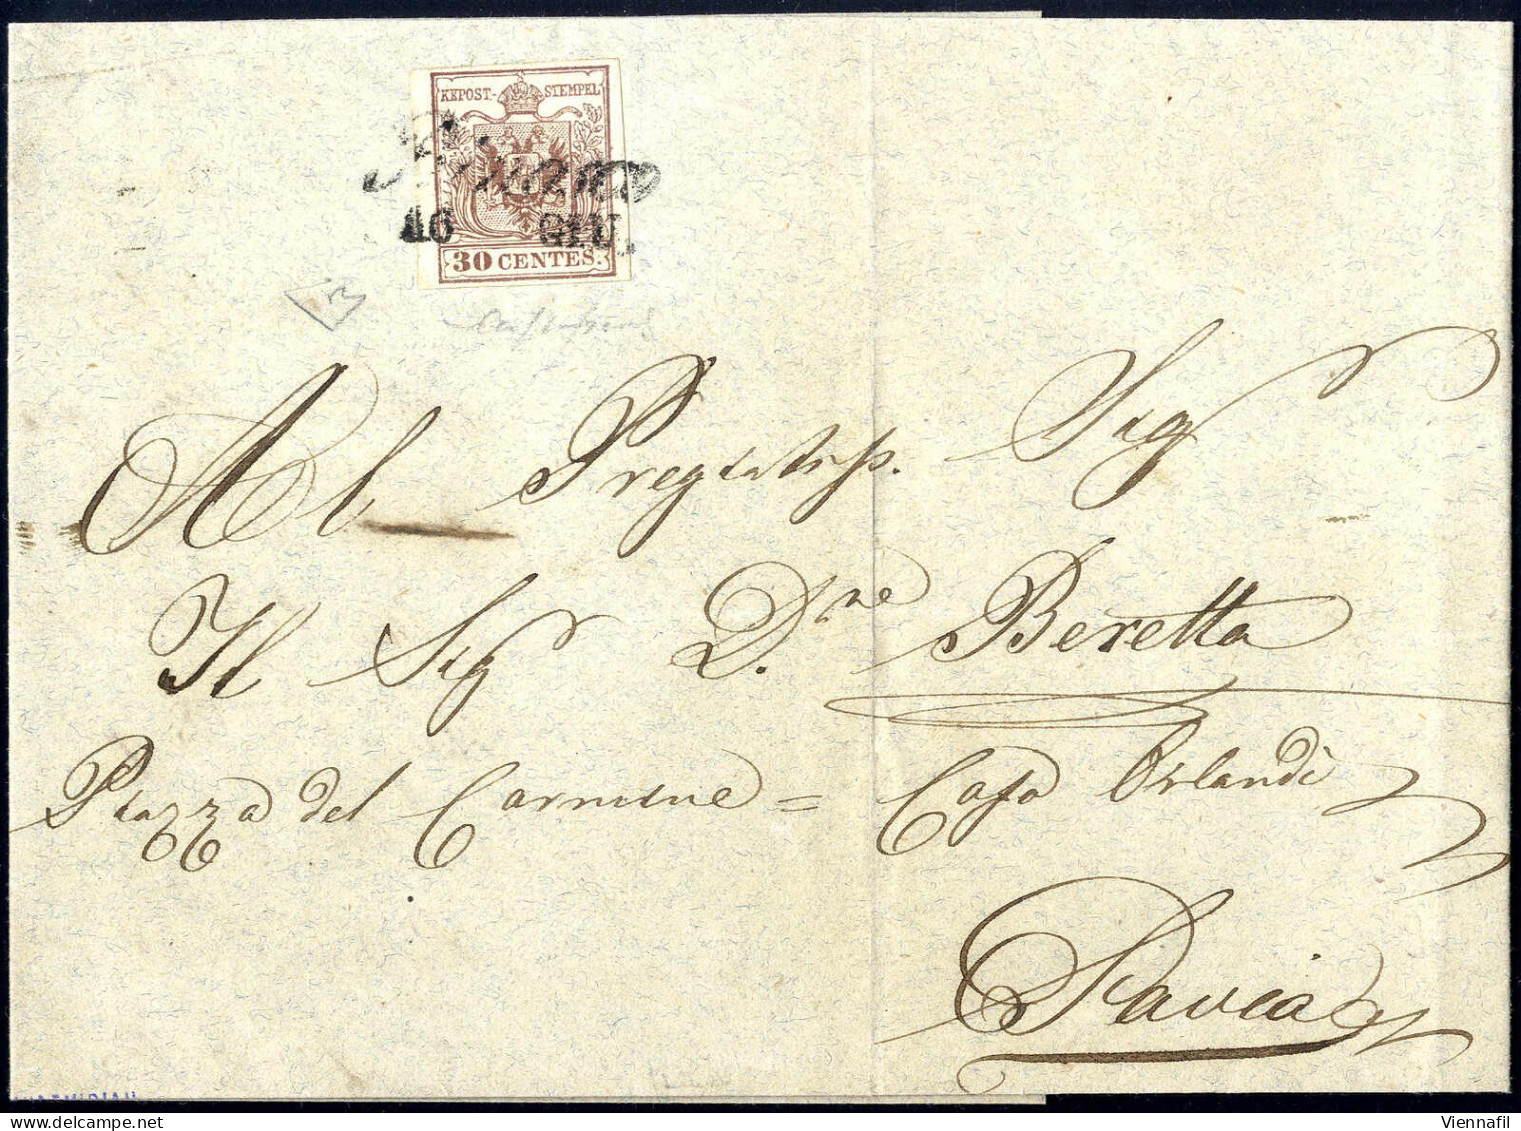 KKPOST-STEMPEL
16 GIU.
30 CENTES.
Al Pregiatiss. Sig
Il Sig D.ne Beretta
Piazza del Carmine = Casa Orlandi
Pavia
Viennafil